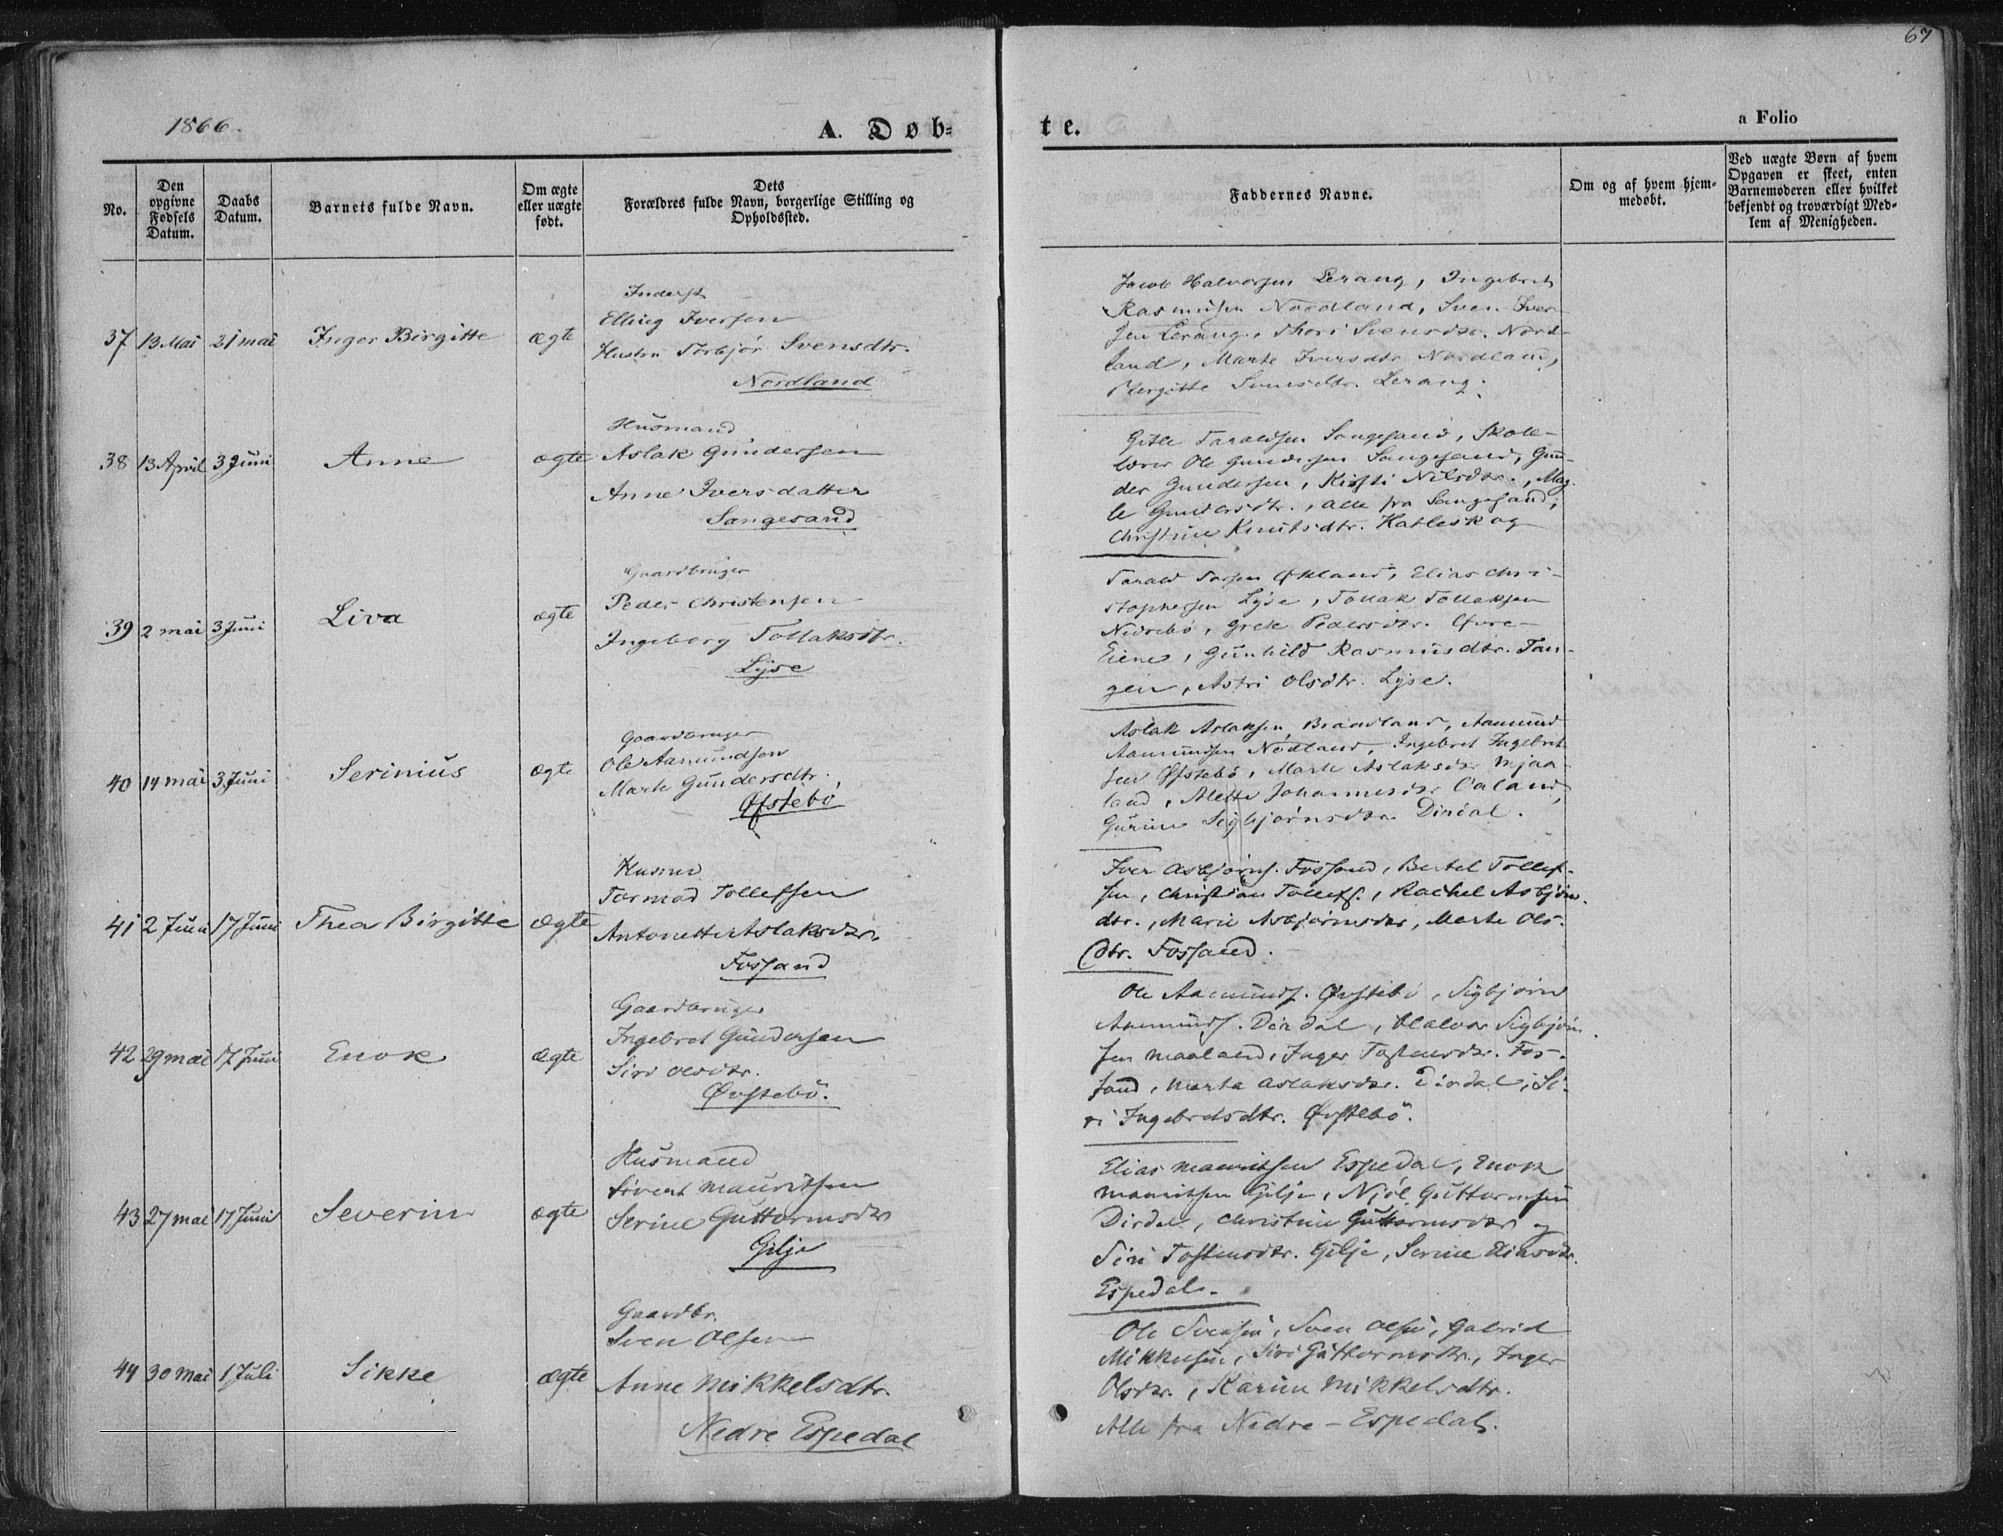 67
1866.
A. Døb=
te.
a Folio
No.
Den
opgivne
Fødsels
Datum.
Daabs
Datum.
Barnets fulde Navn.
Om ægte
eller uægte
født.
Dets
Forældres fulde Navn, borgerlige Stilling og
Opholdssted.
Faddernes Navne.
Om og af hvem hjem-
medøbt.
Ved uægte Børn af hvem
Opgaven er skeet, enten
Barnemoderen eller hvilket
bekjendt og troværdigt Med-
lem af Menigheden.
37 13 Mai 21 mai Inger Birgitte ægte
Inderst
Elling Iversen
Hustru Torbjør Svensdtr.
Nordland
Jacob Halvorsen Lerang, Ingebret
Rasmusen Nordland, Sven Iver-
sen Lerang, Thori Svensdtr. Nord-
land, Marte Iversdtr Nordland,
Bergitte Svensdtr. Lerang.
38 13 April 3 Juni Anne ægte
Husmand
Aslak Gundersen
Anne Iversdatter
Sangesand
Gitle Taraldsen Sangesand, Skole-
lærer Ole Gundersen Sangesand, Gun-
der Gundersen, Kirsti Nilsdtr., Mag-
le Gundersdtr., alle fra Sangesand;
Christine Knutsdtr. Hatleskog
39 2 mai 3 Juni Liva ægte
Gaardbruger
Peder Christensen
Ingeborg Tollaksdtr.
Lyse
Tarald Torsen Økland, Elias Chri-
stophersen Lyse, Tollak Tollaksen
Nedrebø, Grete Pedersdtr. Øvre-
Eiene, Gunhild Rasmusdtr. Tan-
gen, Astri Olsdtr. Lyse.
40 14 mai 3 Juni Serinius ægte
Gaardbruger
Ole Aamundsen
Marte Gundersdtr.
Øfstebø
Aslak Aslaksen Braadland, Aamund
Aamundsen Nedland, Ingebret Ingebret-
sen Øfstebø, Marte Aslaksdtr Mjaa-
land, Mette Johannesdtr Oaland,
Gurine Sigbjørnsdtr. Dirdal.
41 2 Juni 17 Juni Thea Birgitte Ægte
Husmd
Tormod Tollefsen
Antonette Aslaksdtr.
Fossand
Iver Asbjørns. Fossand, Bertel Tollef-
sen, Christian Tollefs., Rachel Asbjørn-
dtr., Marie Asbjørnsdtr, Marte Ols-
dtr. Fossand.
42 29 mai 17 Juni Enok Ægte
Gaardbruger
Ingebret Gundersen
Siri Olsdtr.
Øvstebø.
Ole Aamunds. Øvstebø, Sigbjørn
Aamunds. Dirdal, Halvor Sigbjørn-
sen Maaland, Inger Tostensdtr. Fos-
sand, Marta Aslaksdtr. Dirdal, Si-
ri Ingebretsdtr. Øvstebø.
43 27 mai 17 Juni Severin ægte
Husmand
Sivert Mauritsen
Serine Guttormsdtr
Gilje
Elias Mauritsen Espedal, Enok
Mauritsen Gilje, Njøl Guttormsen
Dirdal, Christine Guttormsdtr og
Siri Tostensdtr. Gilje, Serine Eliasdtr.
Espedal.
44 30 Mai 1 Juli Sikke Ægte
Gaardbr.
Sven Olsen
Anne Mikkelsdtr.
Nedre Espedal
Ole Svensen, Sven Olsen, Gabriel
Mikkelsen, Siri Guttormsdtr., Inger
Olsdtr., Karine Mikkelsdtr.
Alle fra Nedre-Espedal.